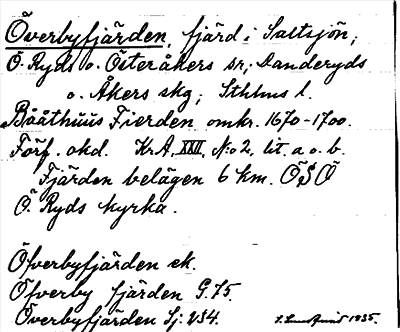 Överbyfjärden, fjärd i Saltsjön;
Ö. Ryds o. Österåkers sr; Danderyds
o. Åkers skg; Sthlms l.
Bååthúús Fierden omkr. 1670-1700.
Förf. okd. Kr.A. XXII, No 2, lit. a o. b.
Fjärden belägen 6 km. ÖSÖ
Ö. Ryds kyrka.
Öfverbyfjärden ek.
Öfverby fjärden G. 75.
Överbyfjärden Sj: 234.
1935.